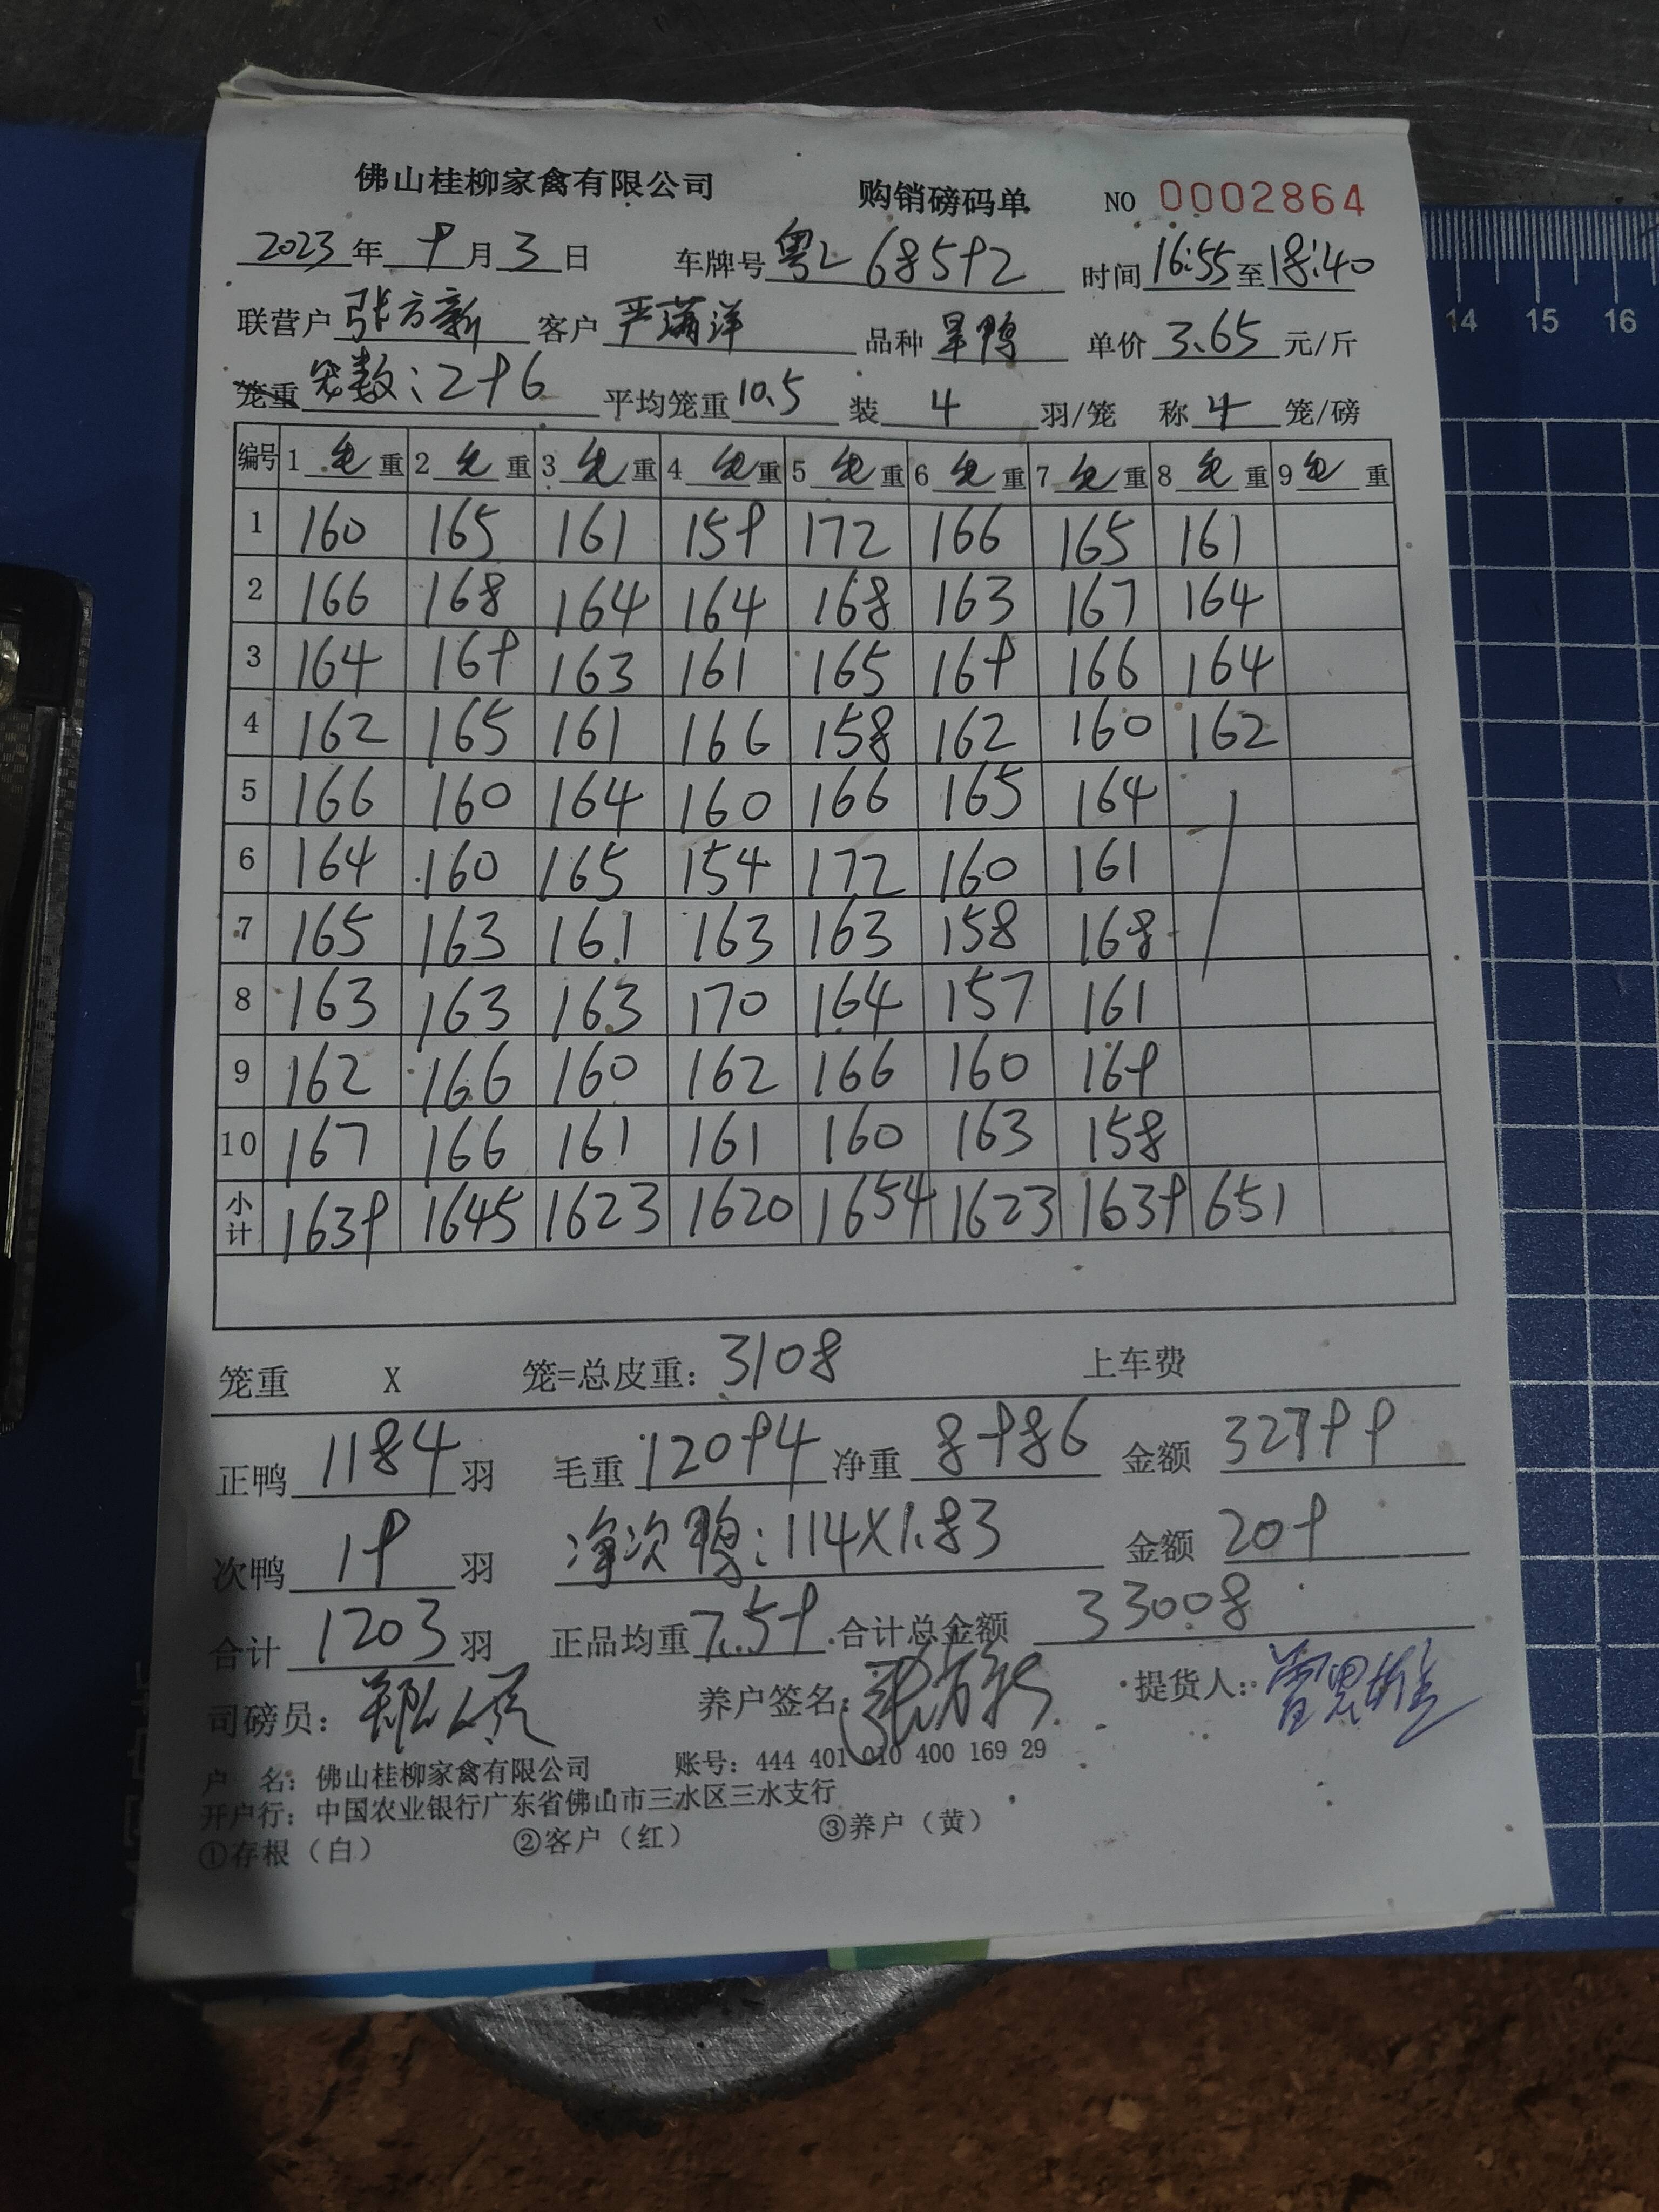 佛山桂柳家禽有限公司 购销磅码单 NO 0002864
2023年 9月 3日 车牌号 粤L 68592 时间 16:55至18:40
联营户 张方新 客户 严满洋 品种 旱鸭 单价 3.65 元/斤
笼重 笼数:296 平均笼重 10.5 装 4 羽/笼 称 4 笼/磅
编号 1 毛重 2 毛重 3 毛重 4 毛重 5 毛重 6 毛重 7 毛重 8 毛重 9 毛重
1 160 165 161 159 172 166 165 161
2 166 168 164 164 168 163 167 164
3 164 169 163 161 165 169 166 164
4 162 165 161 166 158 162 160 162
5 166 160 164 160 166 165 164
6 164 160 165 154 172 160 161
7 165 163 161 163 163 158 168
8 163 163 163 170 164 157 161
9 162 166 160 162 166 160 169
10 167 166 161 161 160 163 158
小计 1639 1645 1623 1620 1654 1623 1639 651
笼重 X 笼=总皮重: 3108 上车费
正鸭 1184 羽 毛重 12094 净重 8986 金额 32799
次鸭 19 羽 净次鸭:114X1.83 金额 209
合计 1203 羽 正品均重 7.59 合计总金额 33008
司磅员: 养户签名: 张方新 提货人:
户 名: 佛山桂柳家禽有限公司 账号: 444 401 010 400 169 29
开户行: 中国农业银行广东省佛山市三水区三水支行
①存根(白) ②客户(红) ③养户(黄)
14 15 16